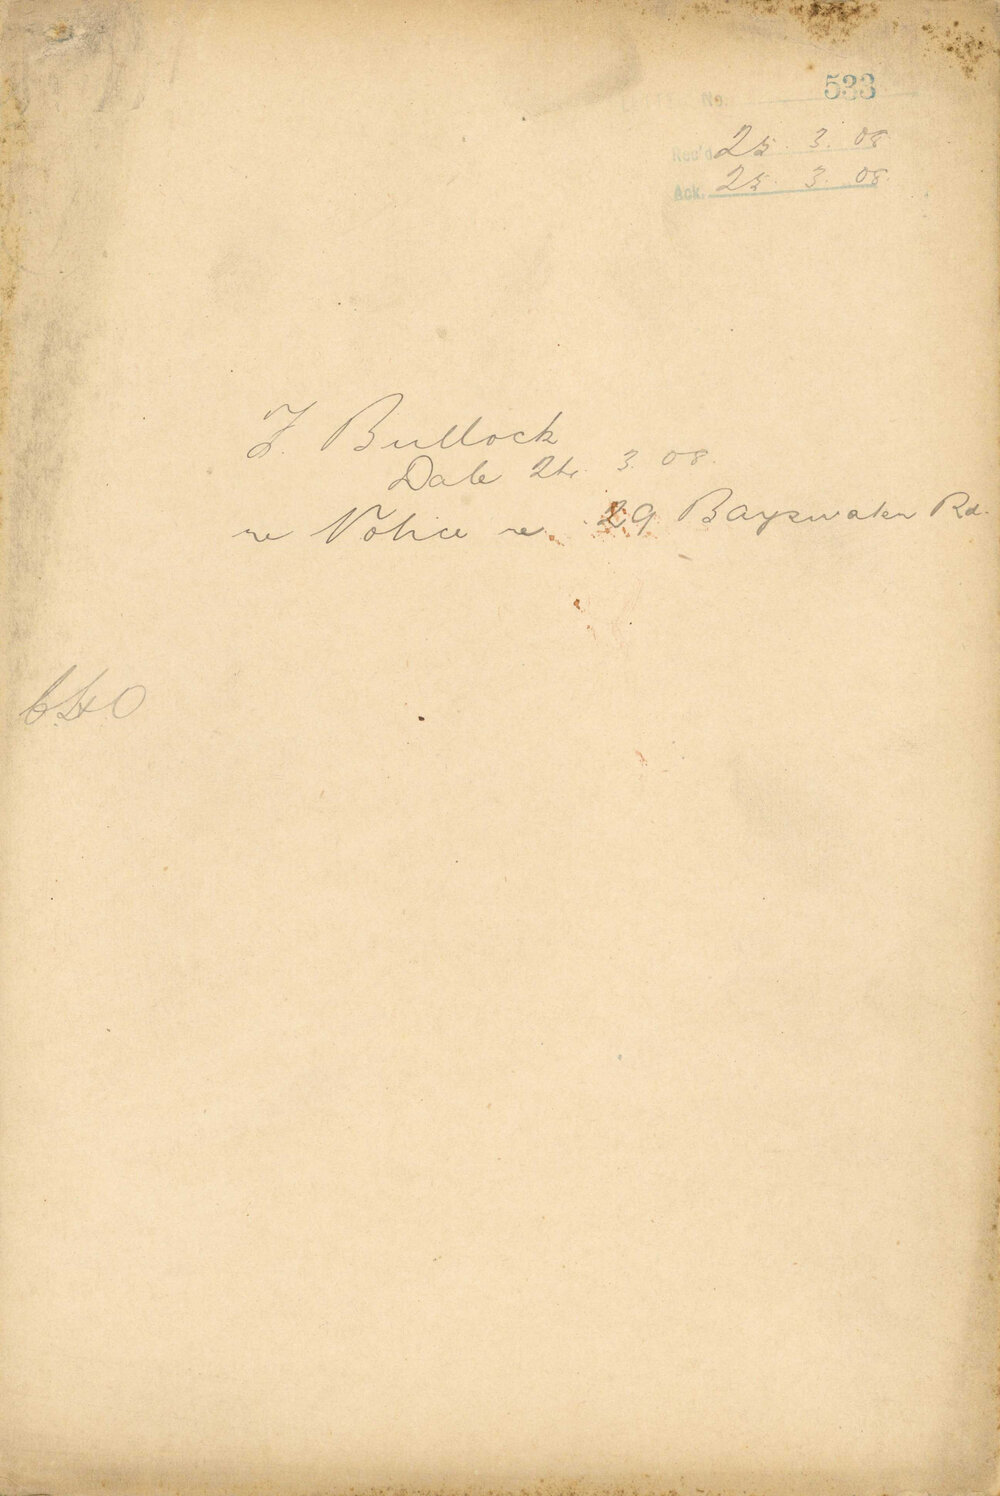 LETTER No. 533
Rec'd 25. 3. 08
Ack. 25. 3. 08.
F. Bullock
Date 24. 3. 08.
re Notice re 29 Bayswater Rd.